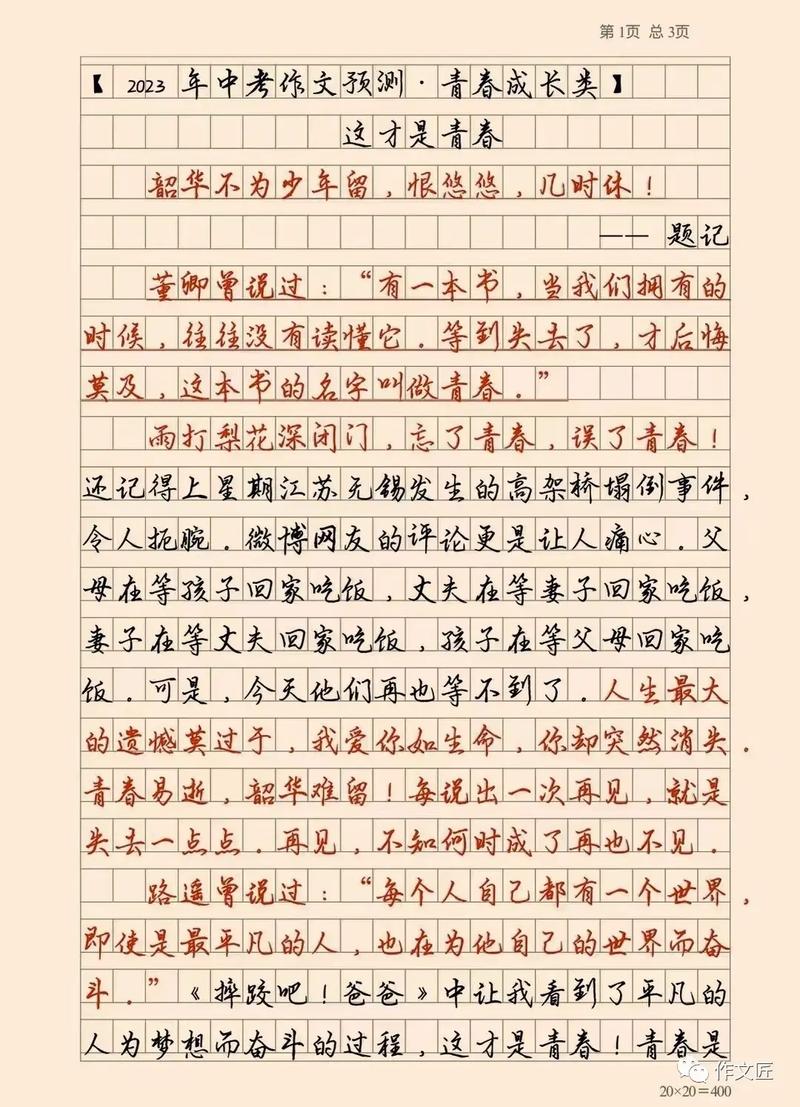 第1页 总3页
【2023年中考作文预测·青春成长类】
这才是青春
韶华不为少年留，恨悠悠，几时休！
——题记
董卿曾说过：“有一本书，当我们拥有的
时候，往往没有读懂它.等到失去了，才后悔
莫及，这本书的名字叫做青春.”
雨打梨花深闭门，忘了青春，误了青春！
还记得上星期江苏无锡发生的高架桥塌倒事件，
令人扼腕.微博网友的评论更是让人痛心.父
母在等孩子回家吃饭，丈夫在等妻子回家吃饭，
妻子在等丈夫回家吃饭，孩子在等父母回家吃
饭.可是，今天他们再也等不到了.人生最大
的遗憾莫过于，我爱你如生命，你却突然消失.
青春易逝，韶华难留！每说出一次再见，就是
失去一点点.再见，不知何时成了再也不见.
路遥曾说过：“每个人自己都有一个世界，
即使是最平凡的人，也在为他自己的世界而奋
斗.”《摔跤吧！爸爸》中让我看到了平凡的
人为梦想而奋斗的过程，这才是青春！青春是
作文匠
20×20=400